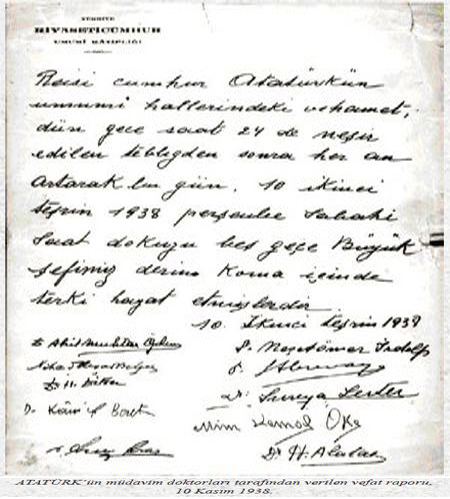 TÜRKİYE
RİYASETİCÜMHUR
UMUMİ KÂTİPLİĞİ
Reisi cumhur Atatürkün
umumî hallerindeki vehamet,
dün gece saat 24 de neşir
edilen tebliğden sonra her an
artarak bu gün, 10 ikinci
teşrin 1938 perşembe sabahı
saat dokuzu beş geçe Büyük
Şefimiz derin koma içinde
terki hayat etmişlerdir.
10. İkinci teşrin 1938
Dr. Akil Muhtar Özden
Dr. Neşet Ömer İrdelp
Dr. Süreya Serter
Mim Kemal Öke
Dr. H. Alataş
ATATÜRK'ün müdavim doktorları tarafından verilen vefat raporu,
10 Kasım 1938.